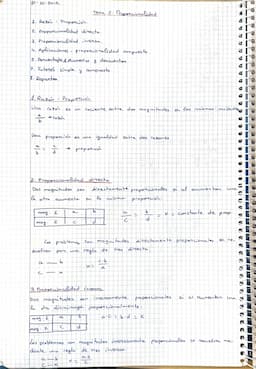 Tema 3: Proporcionalidad
1. Razón - Proporción
2. Proporcionalidad directa
3. Proporcionalidad inversa
4. Aplicaciones: proporcionalidad compuesta
5. Porcentajes, aumentos y descuentos
6. Interés simple y compuesto
7. Repartos
1. Razón - Proporción
Una razón es un cociente entre dos magnitudes en las mismas unidades
a/b → razón
Una proporción es una igualdad entre dos razones
a/b = c/d → proporción
2. Proporcionalidad directa
Dos magnitudes son directamente proporcionales si al aumentar una
la otra aumenta en la misma proporción
mag 1 a b
mag 2 c d
a/c = b/d = K = constante de prop
Los problemas con magnitudes directamente proporcionales se re-
suelven por una regla de tres directa
a — b
c — x
x = c·b/a
3. Proporcionalidad inversa
Dos magnitudes son inversamente proporcionales si al aumentar una
la otra disminuye proporcionalmente
mag 1 a b
mag 2 c d
a·c = b·d = K
Los problemas con magnitudes inversamente proporcionales se resuelven me-
diante una regla de tres inversa
a — b
c — x